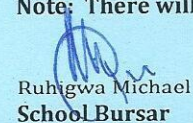 Note: There will
Ruhigwa Michael
School Bursar